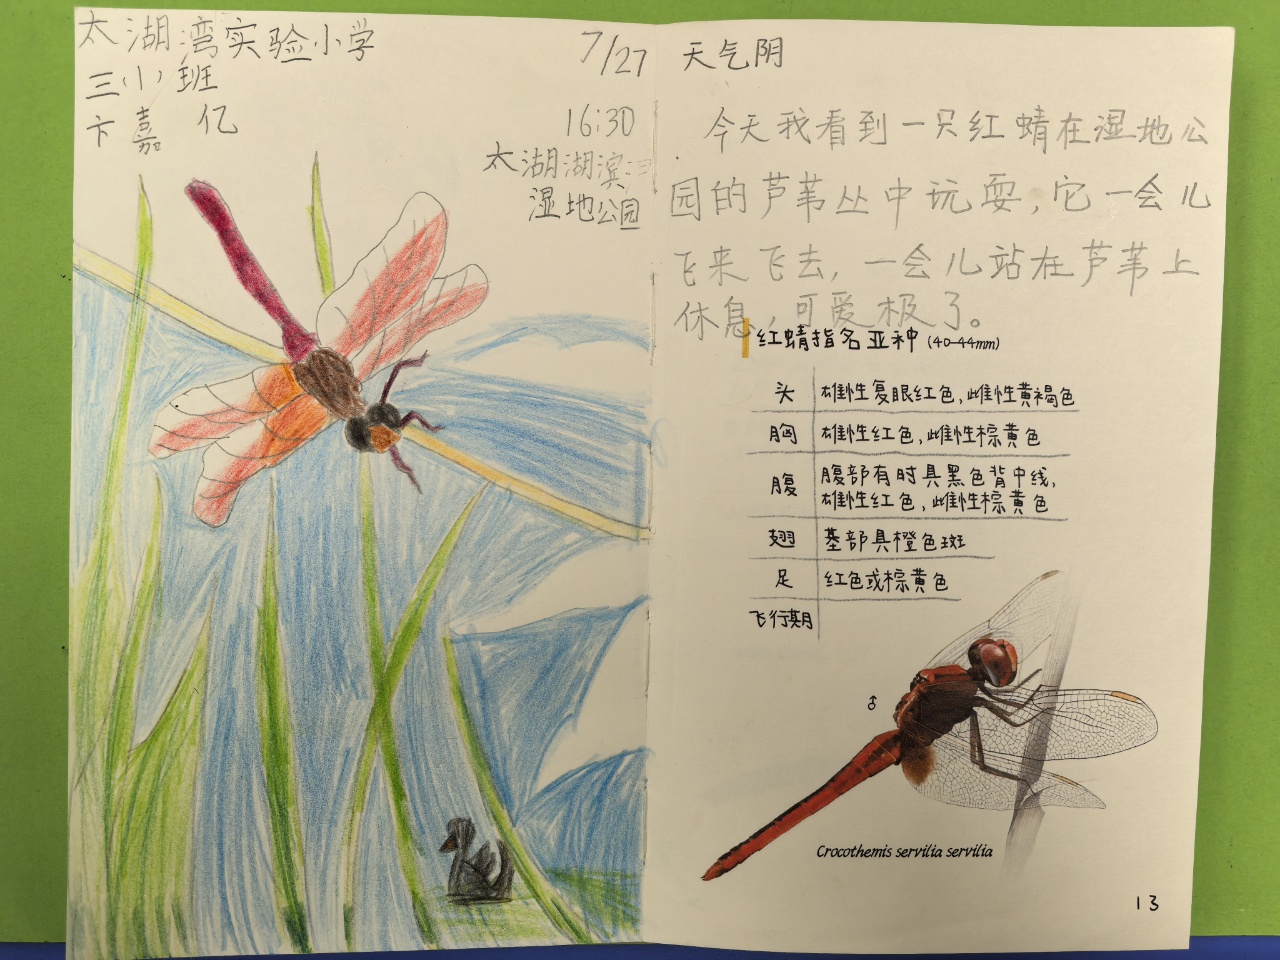 太湖湾实验小学
三(1)班
卞嘉亿
7/27
16:30
太湖湖滨
湿地公园
天气阴
今天我看到一只红蜻在湿地公
园的芦苇丛中玩耍,它一会儿
飞来飞去,一会儿站在芦苇上
休息,可爱极了。
红蜻指名亚种 (40-44mm)
头 雄性复眼红色,雌性黄褐色
胸 雄性红色,雌性棕黄色
腹 腹部有时具黑色背中线,
雄性红色,雌性棕黄色
翅 基部具橙色斑
足 红色或棕黄色
飞行期
♂
Crocothemis servilia servilia
13